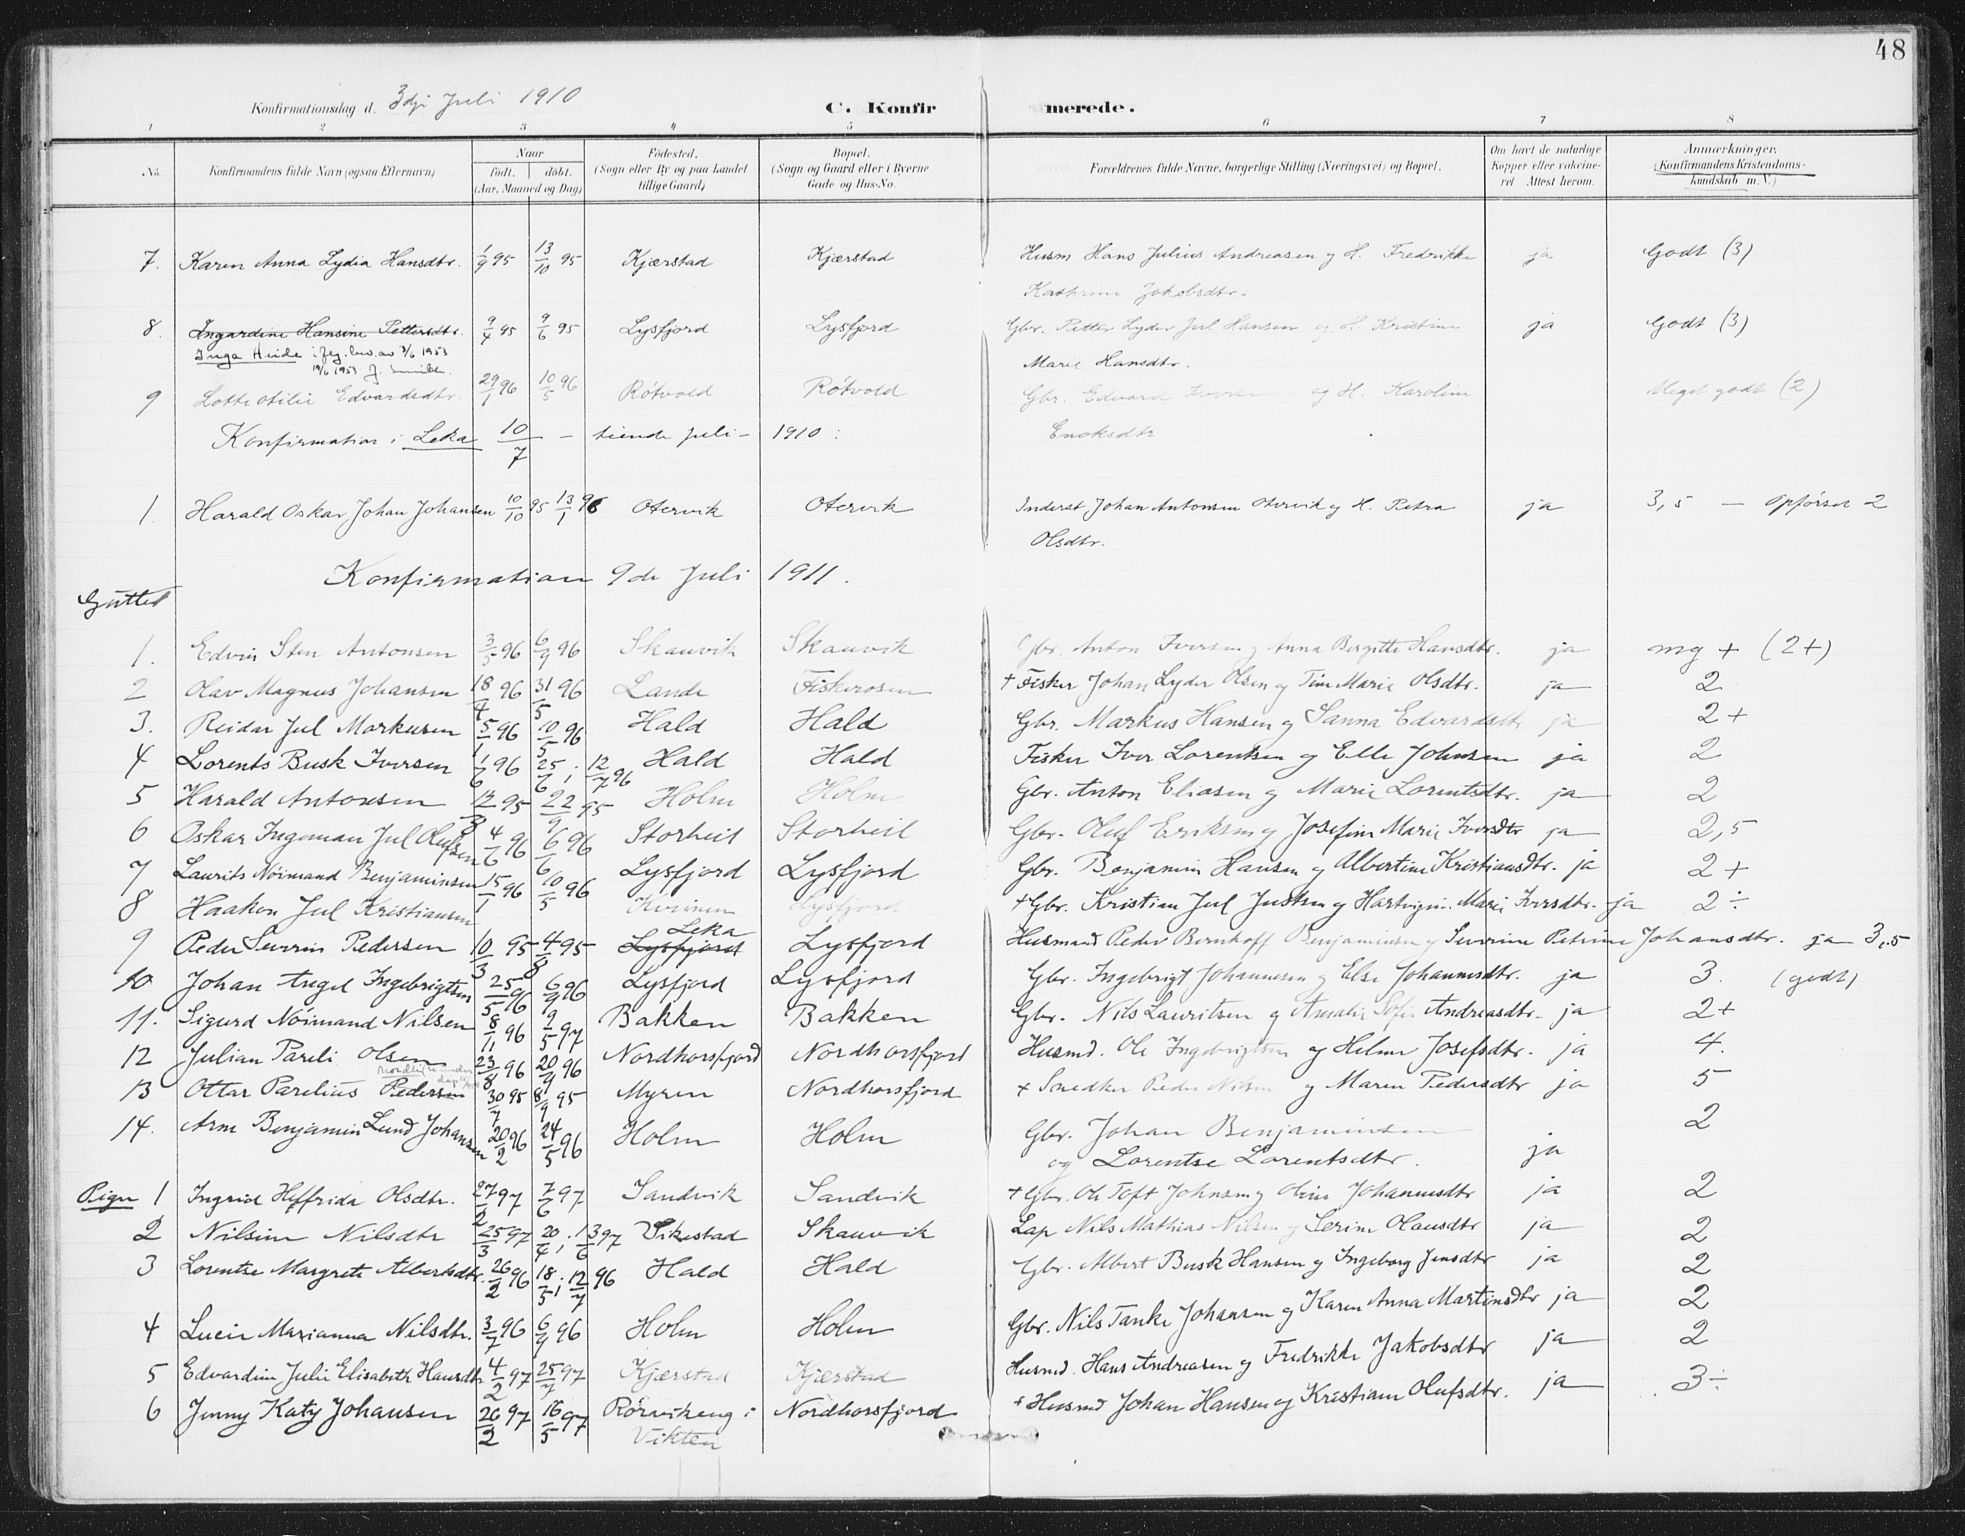 48
Konfirmationsdag d. 3dje Juli 1910
C. Konfirmerede.
1 2 3 4 5 6 7 8
No. Konfirmandens fulde Navn (ogsaa Efternavn) Naar født. døbt. (Aar, Maaned og Dag) Fødested. (Sogn eller By og paa Landet tillige Gaard) Bopæl. (Sogn og Gaard eller i Byerne Gade og Hus-No. Forældrenes fulde Navne, borgerlige Stilling (Næringsvei) og Bopæl. Om havt de naturlige Kopper eller vakcineret Attest herom. Anmærkninger. (Konfirmandens Kristendomskundskab m. V.)
7. Karen Anna Lydia Hansdtr. 1/9 95 13/10 95 Kjærstad Kjærstad Husm Hans Julius Andreasen og H. Fredrikke ja Godt (3)
Kathrine Jakobsdtr.
8. Ingardine Hansine Pettersdtr. 9/4 95 9/6 95 Lysfjord Lysfjord Gbr. Petter Lyder Jul Hansen og H. Kristine ja Godt (3)
Inga Heide i flg. bev. av 3/6 1953 Marie Hansdtr.
19/6 1953
9 Lotte Otilie Edvardsdtr. 29/1 96 10/5 96 Rötvold Rötvold Gbr. Edvard Iversen og H. Karoline Meget godt (2)
Enoksdtr
Konfirmation i Leka 10/7 – tiende juli – 1910:
1. Harald Oskar Johan Johansen 10/10 95 13/1 96 Otervik Otervik Inderst Johan Antonsen Otervik og H. Petra ja 3,5 – Opførsel 2
Olsdtr.
Konfirmation 9de Juli 1911.
Gutter
1. Edvin Sten Antonsen 3/5 96 6/9 96 Skauvik Skauvik Gbr. Anton Iversen og Anna Bergitte Hansdtr. ja mg + (2+)
2 Olav Magnus Johansen 18/4 96 31/5 96 Lande Fiskerosen + Fisker Johan Lyder Olsen og Tine Marie Olsdtr. ja 2
3. Reidar Jul Markusen 5/1 96 10/5 96 Hald Hald Gbr. Markus Hansen og Sanna Edvardsdtr ja 2+
4 Lorents Busk Iversen 1/6 96 25/6; 12/7 96 Hald Hald Fisker Iver Lorentsen og Elle Johnsen ja 2
5 Harald Antonsen 95 22/9 95 Holm Holm Gbr. Anton Eliasen og Marie Lorentsdtr. ja 2
6 Oskar Ingeman Jul Olufsen 4/6 96 6/6 96 Storheil Storheil Gbr. Oluf Eriksen og Josefine Marie Iversdtr ja 2,5
7 Laurits Nöimand Benjaminsen 15/1 96 10/5 96 Lysfjord Lysfjord Gbr. Benjamin Hansen og Albertine Kristiansdtr. ja 2+
8 Haakon Jul Kristiansen Lysfjord + Gbr. Kristian Jul Justsen og Hartvigine Marie Iversdtr. ja 2÷
9 Peder Severin Pedersen 10/3 95 4/8 95 Leka Lysfjord Lysfjord Husmand Peder Bernhoff Benjaminsen og Severine Petrine Johansdtr. ja 3,5
10 Johan Angel Ingebrigtsen 25/5 96 6/9 96 Lysfjord Lysfjord Gbr. Ingebrigt Johannesen og Else Johannesdtr. ja 3. (godt)
11. Sigurd Nöimand Nilsen 8/1 96 2/5 97 Bakken Bakken Gbr. Nils Lauritsen og Amalie Sofie Andreasdtr. ja 2+
12 Julian Pareli Olsen 23/8 96 20/9 96 Nordhorsfjord Nordhorsfjord Husmd. Ole Ingebrigtsen og Helene Josefsdtr. ja 4.
13 Ottar Parelius Pedersen 30/7 95 8/9 95 Myren Nordhorsfjord + Snedker Peder Nilsen og Maren Pedersdtr ja 5
14. Arne Benjamin Lund Johansen 20/2 96 24/5 96 Holm Holm Gbr. Johan Benjaminsen 2
og Lorentse Lorentsdtr. ja
Piger 1 Ingrid Heffrida Olsdtr. 27/2 97 7/6 97 Sandvik Sandvik + Gbr. Ole Toft Johnsen og Oline Johannesdtr ja 2
2 Nilsine Nilsdtr 25/3 97 20/4; 13/6 97 Vikestad Skauvik Lap Nils Mathias Nilsen og Serine Olausdtr ja 2
3 Lorentse Margrete Albertsdtr. 26/2 96 18/5; 12/7 96 Hald Hald Gbr. Albert Busk Hansen og Ingeborg Jensdtr ja 2
4 Lucie Marianna Nilsdtr. 3/7 96 6/9 96 Holm Holm Gbr. Nils Tanke Johansen og Karen Anna Martinsdtr ja 2
5 Edvardine Julie Elisabeth Hansdtr 4/2 97 25/7 97 Kjærstad Kjærstad Husmd. Hans Andreasen og Fredrikke Jakobsdtr ja 2
6 Jenny Katy Johansen 26/2 97 16/5 97 Rörvikeng i Nordhorsfjord + Husmd Johan Hansen og Kristiane Olufsdtr. ja 3÷
Vikten